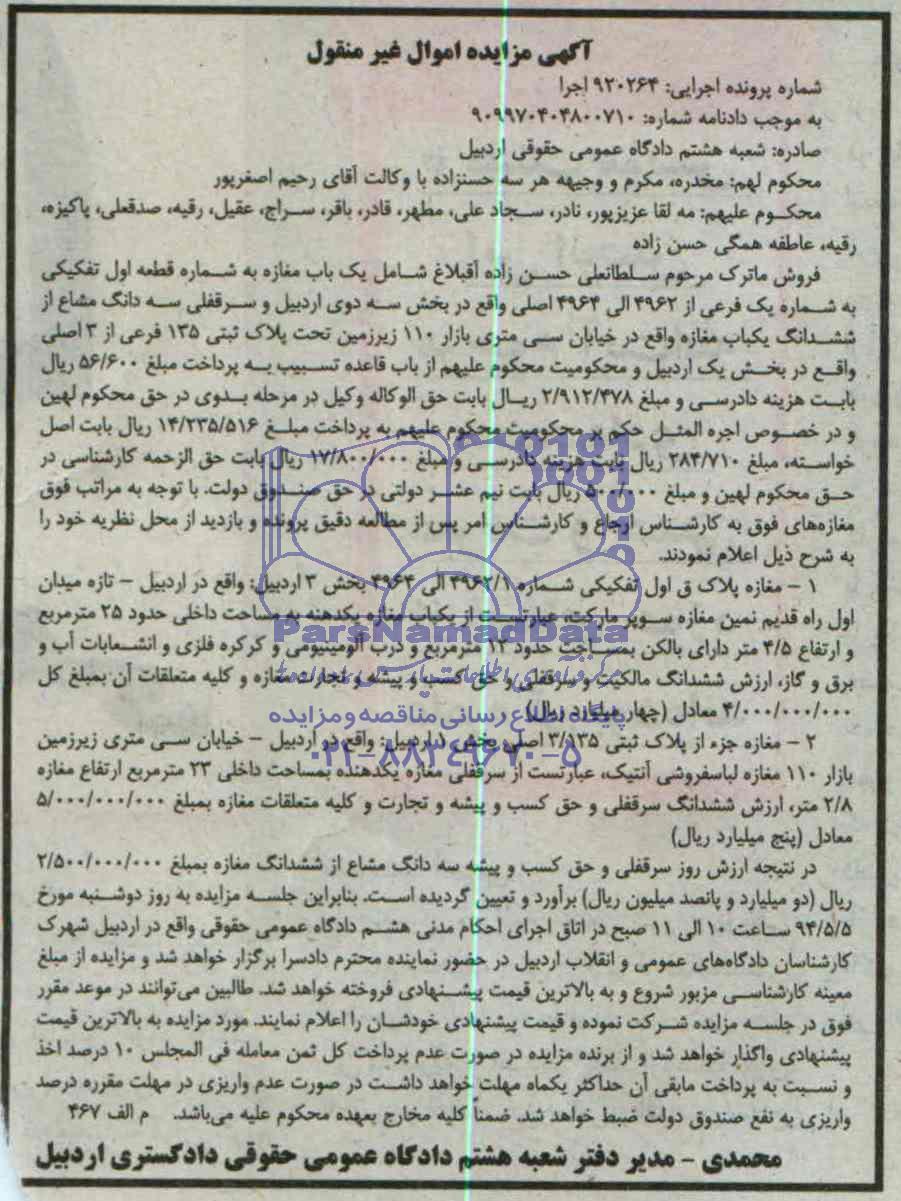 آگهی مزایده اموال غیر منقول
شماره پرونده اجرایی: ۹۲۰۲۶۴ اجرا
به موجب دادنامه شماره: ۹۰۹۹۷۰۴۰۴۸۰۰۷۱۰
صادره: شعبه هشتم دادگاه عمومی حقوقی اردبیل
محکوم لهم: مخدره، مکرم و وجیهه هر سه حسنزاده با وکالت آقای رحیم اصغرپور
محکوم علیهم: مه لقا عزیزپور، نادر، سجاد علی، مطهر، قادر، باقر، سراج، عقیل، رقیه، صدقعلی، پاکیزه،
رقیه، عاطفه همگی حسن زاده
فروش ماترک مرحوم سلطانعلی حسن زاده آقبلاغ شامل یک باب مغازه به شماره قطعه اول تفکیکی
به شماره یک فرعی از ۴۹۶۲ الی ۴۹۶۴ اصلی واقع در بخش سه دوی اردبیل و سرقفلی سه دانگ مشاع از
ششدانگ یکباب مغازه واقع در خیابان سی متری بازار ۱۱۰ زیرزمین تحت پلاک ثبتی ۱۳۵ فرعی از ۳ اصلی
واقع در بخش یک اردبیل و محکومیت محکوم علیهم از باب قاعده تسبیب به پرداخت مبلغ ۵۶/۶۰۰ ریال
بابت هزینه دادرسی و مبلغ ۲/۹۱۲/۴۷۸ ریال بابت حق الوکاله وکیل در مرحله بدوی در حق محکوم لهین
و در خصوص اجره المثل حکم بر محکومیت محکوم علیهم به پرداخت مبلغ ۱۴/۲۳۵/۵۱۶ ریال بابت اصل
خواسته، مبلغ ۲۸۴/۷۱۰ ریال بابت هزینه دادرسی و مبلغ ۱۷/۸۰۰/۰۰۰ ریال بابت حق الزحمه کارشناسی در
حق محکوم لهین و مبلغ ۵۰۰/۰۰۰ ریال بابت نیم عشر دولتی در حق صندوق دولت. با توجه به مراتب فوق
مغازه‌های فوق به کارشناس ارجاع و کارشناس امر پس از مطالعه دقیق پرونده و بازدید از محل نظریه خود را
به شرح ذیل اعلام نمودند.
۱ – مغازه پلاک ق اول تفکیکی شماره ۴۹۶۲/۱ الی ۴۹۶۴ بخش ۳ اردبیل: واقع در اردبیل – تازه میدان
اول راه قدیم نمین مغازه سوپر مارکت، عبارتست از یکباب مغازه یکدهنه به مساحت داخلی حدود ۲۵ مترمربع
و ارتفاع ۴/۵ متر دارای بالکن بمساحت حدود ۱۲ مترمربع و درب آلومینیومی و کرکره فلزی و انشعابات آب و
برق و گاز، ارزش ششدانگ مالکیت و سرقفلی و حق کسب و پیشه و تجارت مغازه و کلیه متعلقات آن بمبلغ کل
۴/۰۰۰/۰۰۰/۰۰۰ معادل (چهار میلیارد ریال)
۲ – مغازه جزء از پلاک ثبتی ۳/۱۳۵ اصلی بخش ۱ اردبیل: واقع در اردبیل – خیابان سی متری زیرزمین
بازار ۱۱۰ مغازه لباسفروشی آنتیک، عبارتست از سرقفلی مغازه یکدهنده بمساحت داخلی ۲۳ مترمربع ارتفاع مغازه
۲/۸ متر، ارزش ششدانگ سرقفلی و حق کسب و پیشه و تجارت و کلیه متعلقات مغازه بمبلغ ۵/۰۰۰/۰۰۰/۰۰۰
معادل (پنج میلیارد ریال)
در نتیجه ارزش روز سرقفلی و حق کسب و پیشه سه دانگ مشاع از ششدانگ مغازه بمبلغ ۲/۵۰۰/۰۰۰/۰۰۰
ریال (دو میلیارد و پانصد میلیون ریال) برآورد و تعیین گردیده است. بنابراین جلسه مزایده به روز دوشنبه مورخ
۹۴/۵/۵ ساعت ۱۰ الی ۱۱ صبح در اتاق اجرای احکام مدنی هشتم دادگاه عمومی حقوقی واقع در اردبیل شهرک
کارشناسان دادگاه‌های عمومی و انقلاب اردبیل در حضور نماینده محترم دادسرا برگزار خواهد شد و مزایده از مبلغ
معینه کارشناسی مزبور شروع و به بالاترین قیمت پیشنهادی فروخته خواهد شد. طالبین می‌توانند در موعد مقرر
فوق در جلسه مزایده شرکت نموده و قیمت پیشنهادی خودشان را اعلام نمایند. مورد مزایده به بالاترین قیمت
پیشنهادی واگذار خواهد شد و از برنده مزایده در صورت عدم پرداخت کل ثمن معامله فی المجلس ۱۰ درصد اخذ
و نسبت به پرداخت مابقی آن حداکثر یکماه مهلت خواهد داشت در صورت عدم واریزی در مهلت مقرره درصد
واریزی به نفع صندوق دولت ضبط خواهد شد. ضمناً کلیه مخارج بعهده محکوم علیه می‌باشد. م الف ۴۶۷
محمدی – مدیر دفتر شعبه هشتم دادگاه عمومی حقوقی دادگستری اردبیل
ParsNamadData
پایگاه اطلاع رسانی مناقصه و مزایده
۰۲۱-۸۸۳۴۹۶۷۰-۵